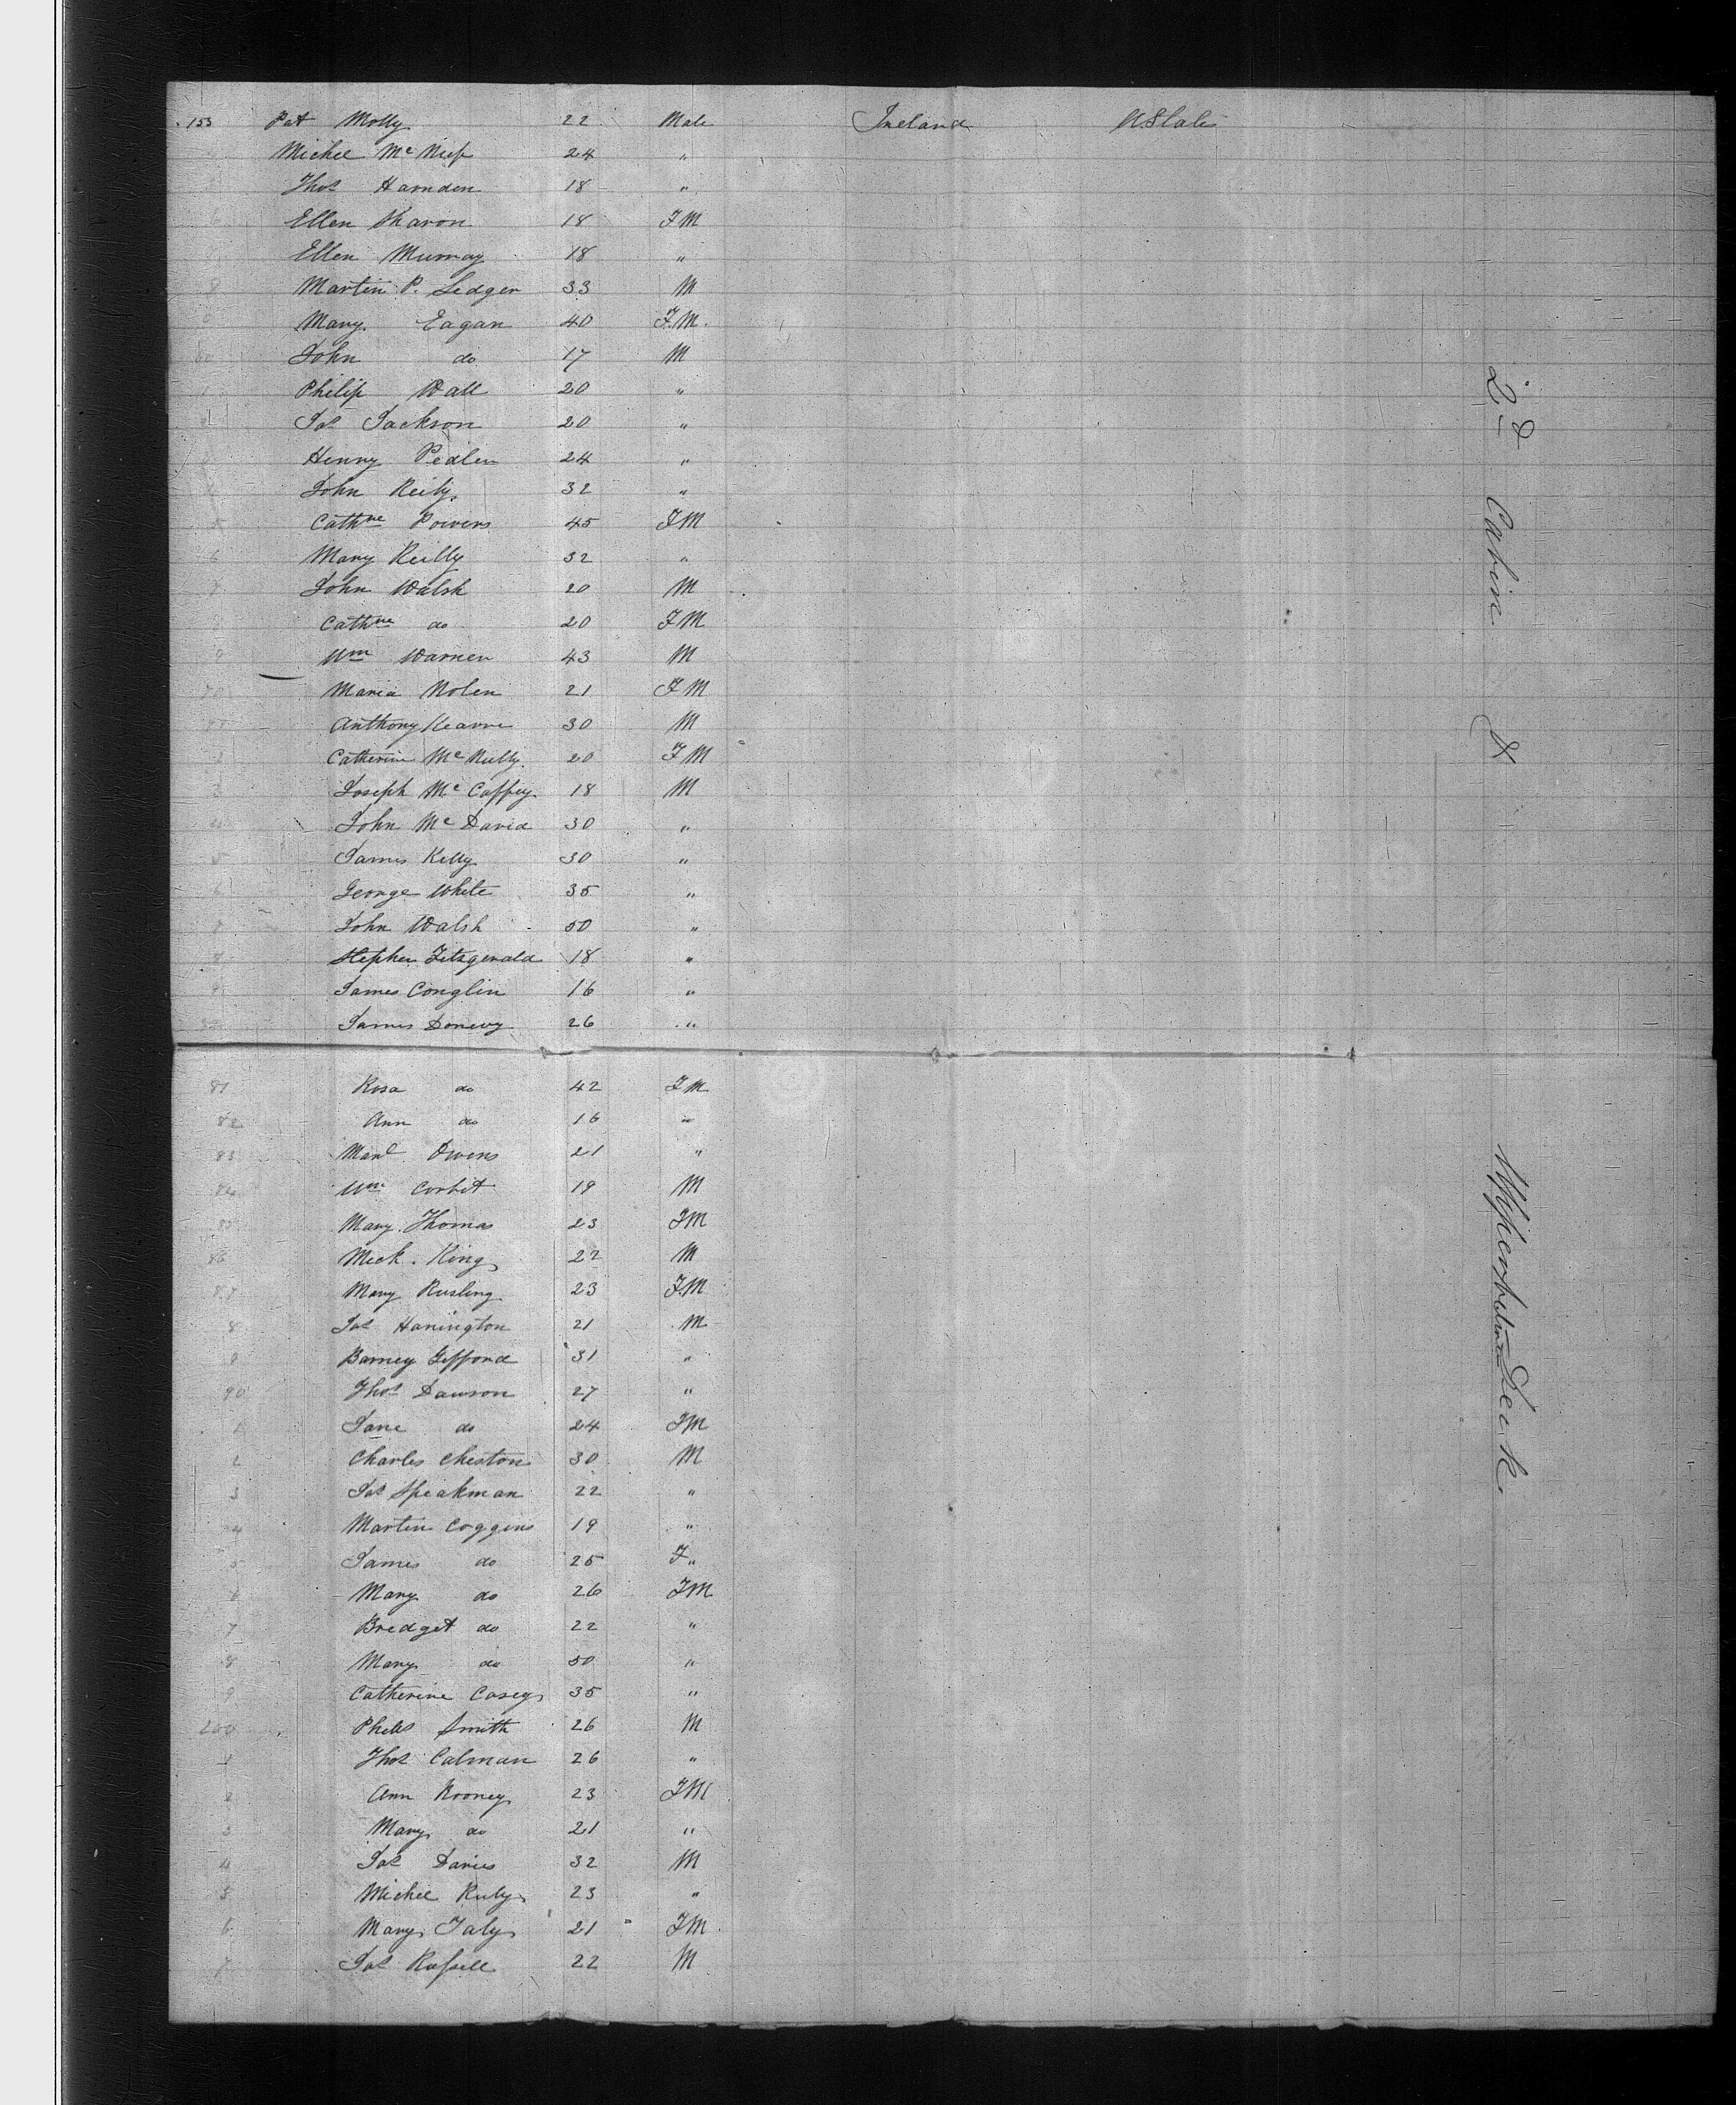 153 Pat Molly 22 Male Ireland U States
Michel Mc 24 "
Thos Harnden 18 "
6 Ellen Sharon 18 FM
Ellen Murray 18 "
8 Martin P. Ledger 33 M
Mary Eagan 40 F.M.
60 John do 17 M
Philip Wall 20 "
Jas Jackson 20 "
Henry Pedlen 24 "
John Reily 32 "
5 Cathne Powers 45 FM
6 Mary Reilly 32 "
7 John Walsh 20 M
8 Cathne do 20 FM
9 Wm Warner 43 M
70 Maria Nolen 21 FM
Anthony Kearns 30 M
2 Catherine Mc Nulty 20 FM
3 Joseph Mc Caffrey 18 M
4 John Mc David 30 "
5 James Kelly 30 "
6 George White 35 "
7 John Walsh 50 "
8 Stephen Fitzgerald 18 "
9 James Conglin 16 "
James Donevy 26 "
81 Rosa do 42 FM
82 Ann do 16 "
83 Owens 21 "
84 Wm Corbit 19 M
85 Mary Thomas 23 FM
86 Mick. King 22 M
87 Mary Rusling 23 FM
8 Jas Harrington 21 M
9 Barney Gifford 31 "
90 Thos Dawson 27 "
1 Jane do 24 FM
2 Charles Cheston 30 M
3 Jas Speakman 22 "
4 Martin Coggins 19 "
5 James do 25 F "
6 Mary do 26 FM
7 Bredget do 22 "
8 Mary do 50 "
9 Catherine Casey 35 "
200 Smith 26 M
1 Thos Calman 26 "
2 Ann Rooney 23 FM
3 Mary do 21 "
4 Jas Davies 32 M
5 Michel 23 "
6 Mary 21 FM
7 Jas Russell 22 M
2d Cabin &
Deck